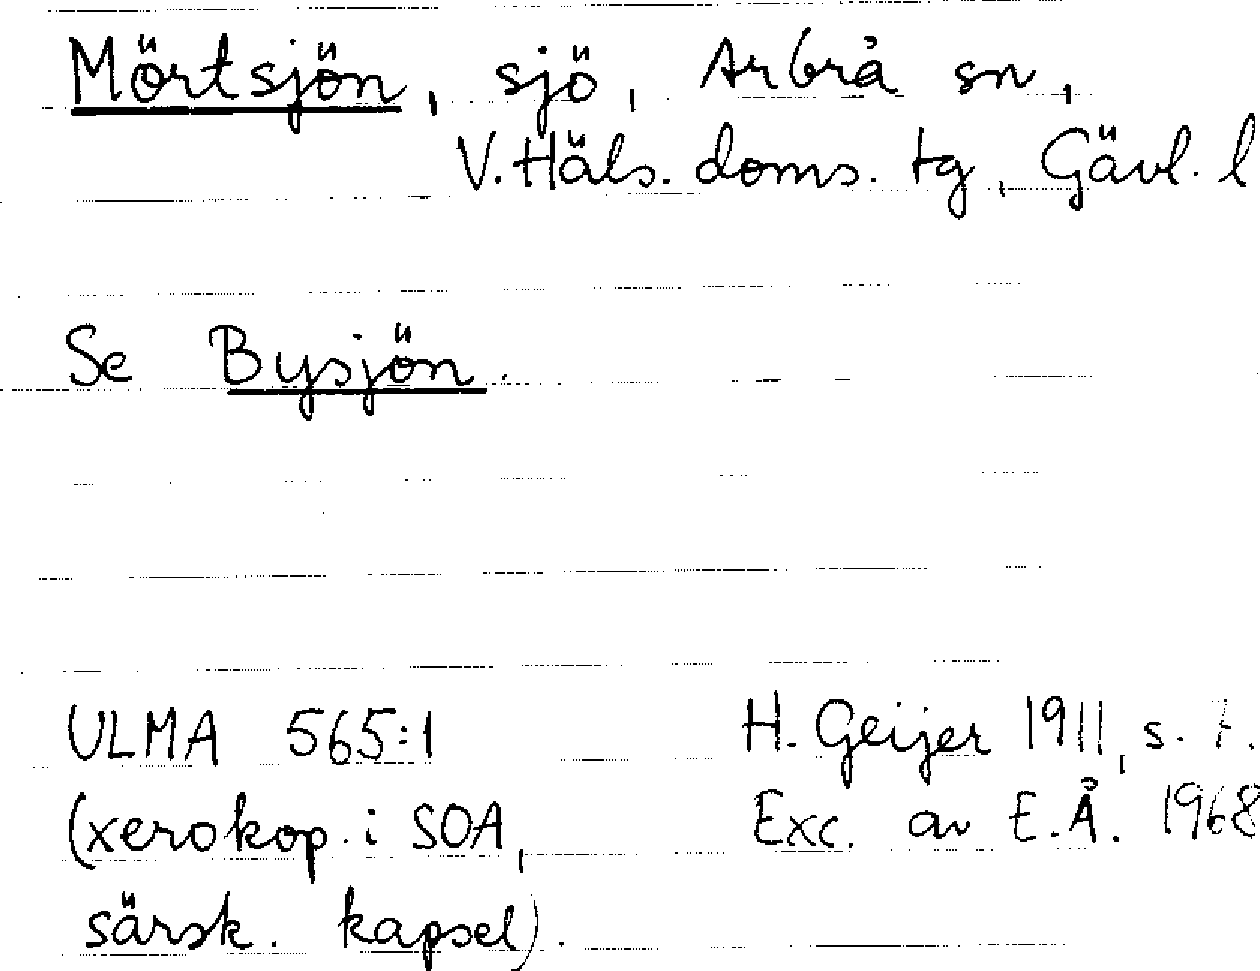 Mörtsjön, sjö, Arbrå sn,
V. Häls. doms. tg, Gävl. l
Se Bysjön.
ULMA 565:1
(xerokop. i SOA,
särsk. kapsel).
H. Geijer 1911, s.
Exc. av E.Å. 1968